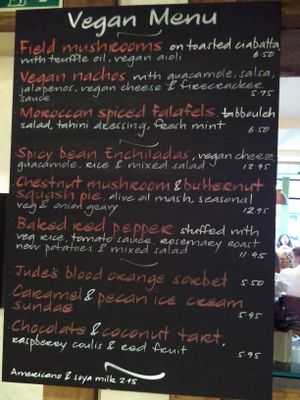 Vegan Menu
Field mushrooms on toasted ciabatta,
with truffle oil, vegan aioli 6.50
Vegan nachos with guacamole, salsa,
jalapenos, vegan cheese & firecracker
sauce 5.75
Moroccan spiced falafels, tabbouleh
salad, tahini dressing, fresh mint 6.50
Spicy bean Enchiladas, vegan cheese,
guacamole, rice & mixed salad 12.95
Chestnut mushroom & butternut
squash pie, olive oil mash, seasonal
veg & onion gravy 12.95
Baked red pepper stuffed with
veg rice, tomato sauce, rosemary roast
new potatoes & mixed salad 11.95
Jude's blood orange sorbet 5.50
Caramel & pecan ice cream
sundae 5.95
Chocolate & coconut tart,
raspberry coulis & red fruit 5.95
Americano & soya milk 2.15